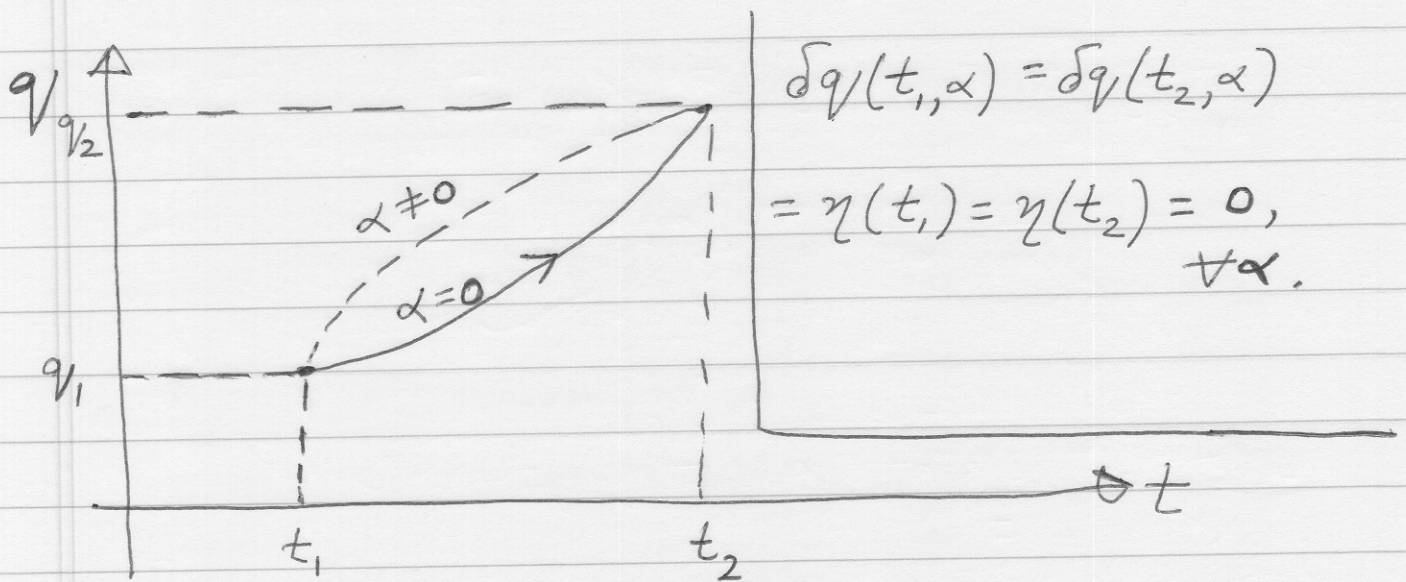 q
q₂
α≠0
α=0
q₁
t₁
t₂
t
δq(t₁,α) = δq(t₂,α)
= η(t₁) = η(t₂) = 0,
∀α.